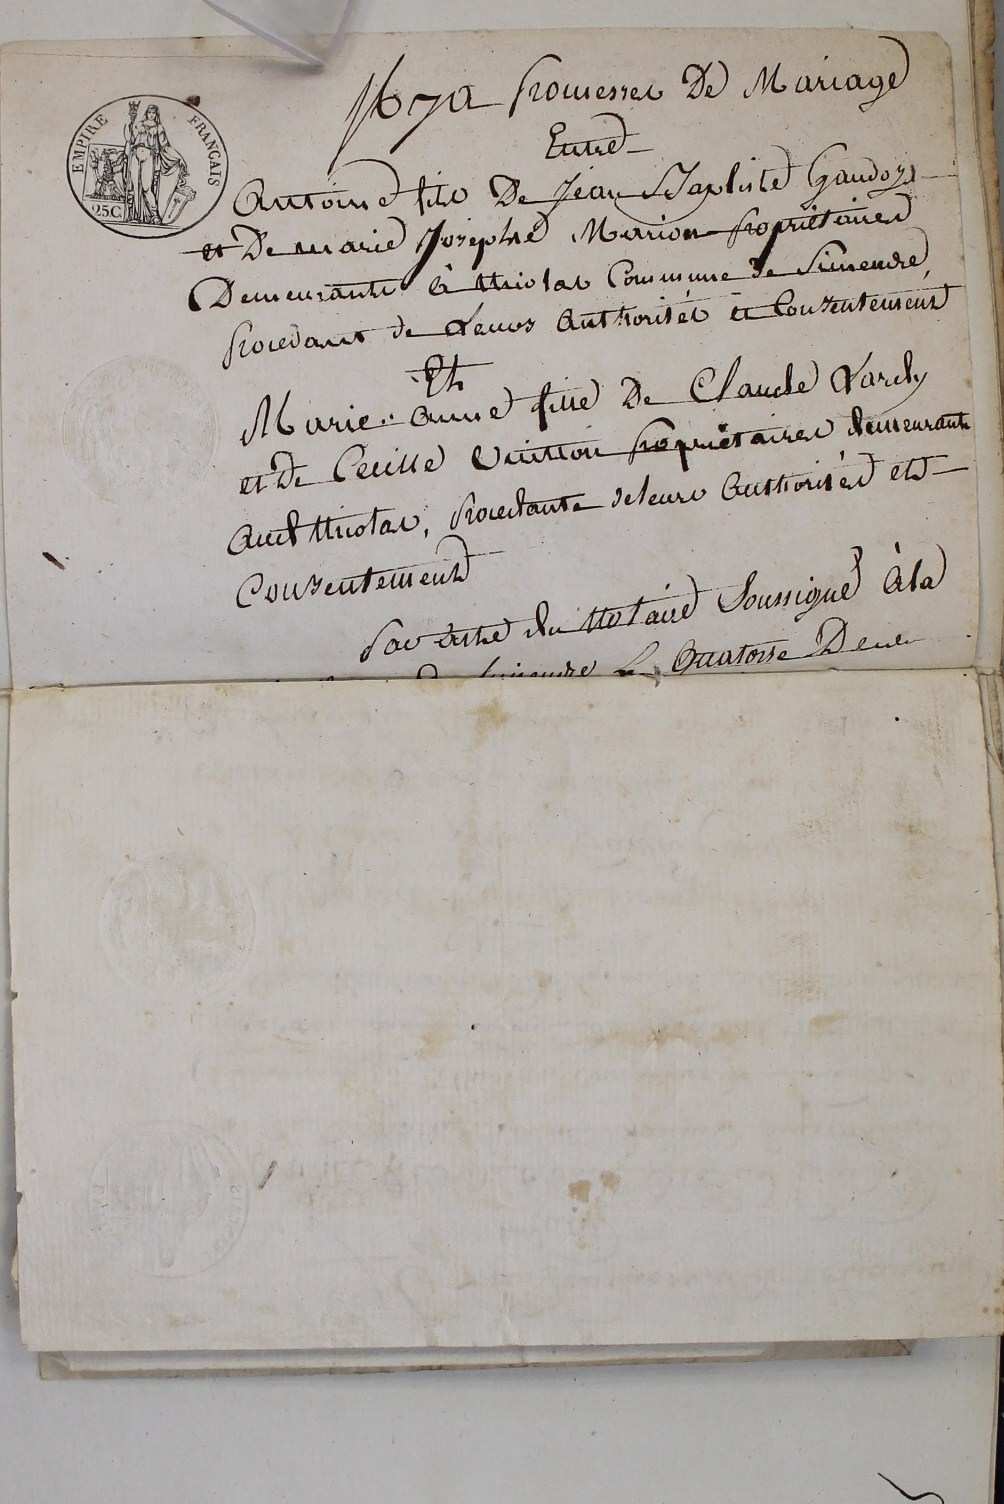 EMPIRE FRANÇAIS
25C.
Il y a Promesses De Mariage
Entre
Antoine fils De Jean Baptiste Gaudoz
et De Marie Josephe Marion propriétaires
Demeurants à Nicolas Commune de Simendre,
procedant de Leurs Authorités et Conzentement
Et
Marie Anne fille De Claude Vardy
et De Cecille Vuitton propriétaires demeurants
Aud Nicolas, procedante deleurs Authorités et
Conzentement
Par istre du Notaire Soussigné à la
De Simendre Le Quatorse De